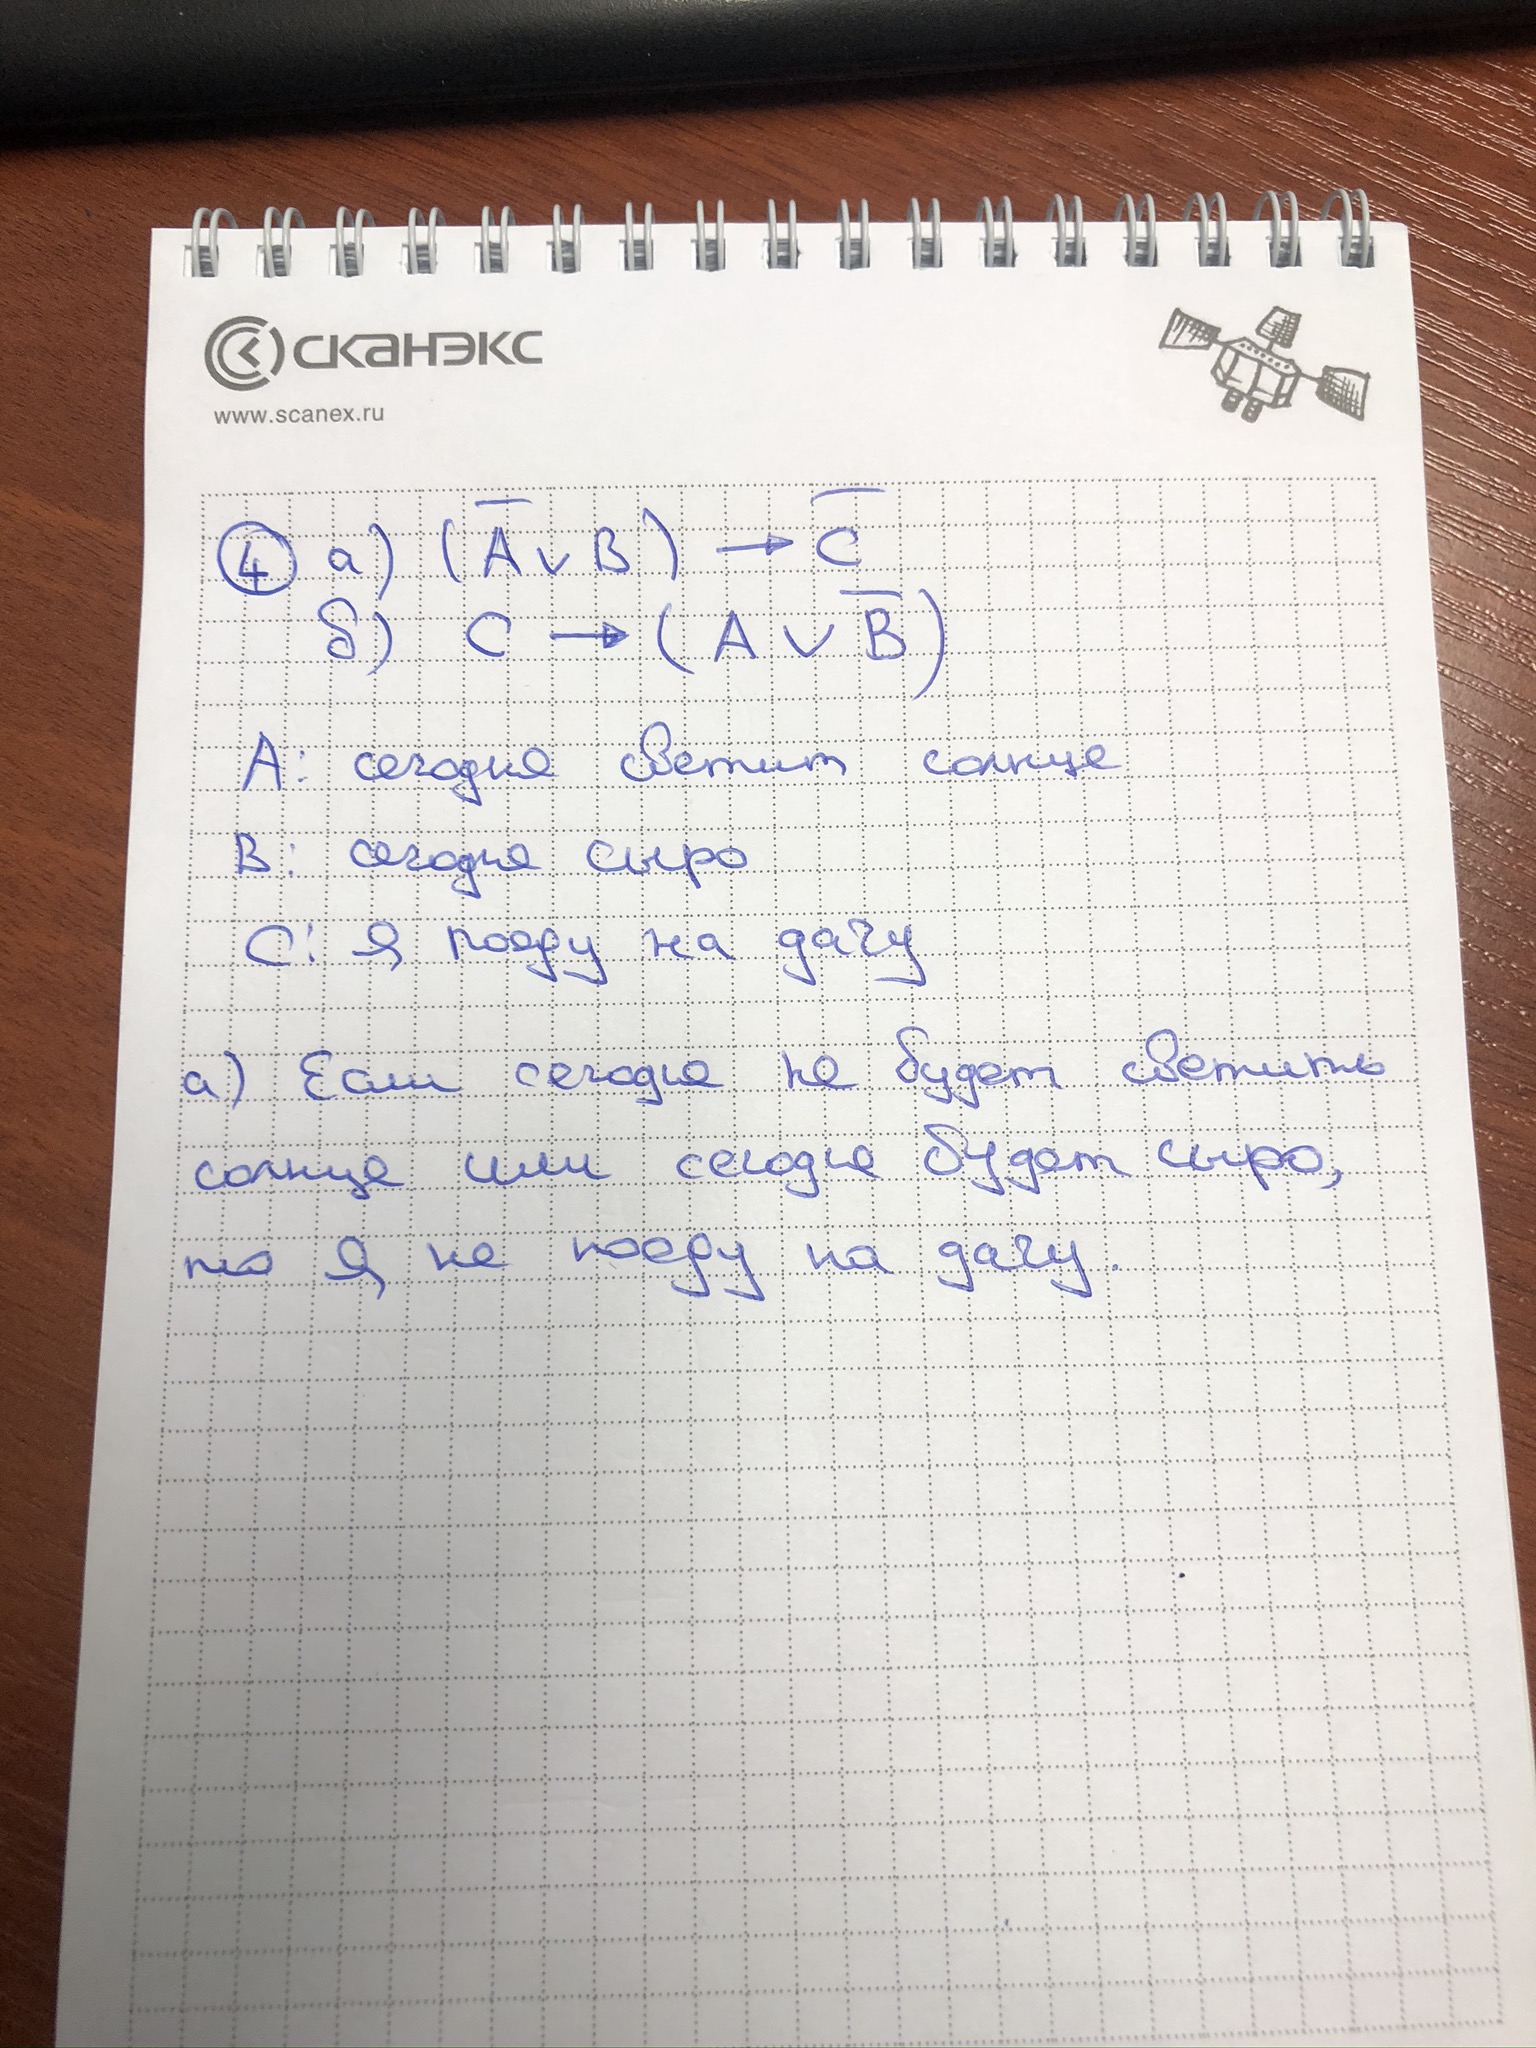 СКАНЭКС
www.scanex.ru
④ а) (A̅ ∨ B) → C̅
б) C → (A ∨ B̅)
A: сегодня светит солнце
B: сегодня сыро
C: я поеду на дачу
а) Если сегодня не будет светить
солнце или сегодня будет сыро,
то я не поеду на дачу.